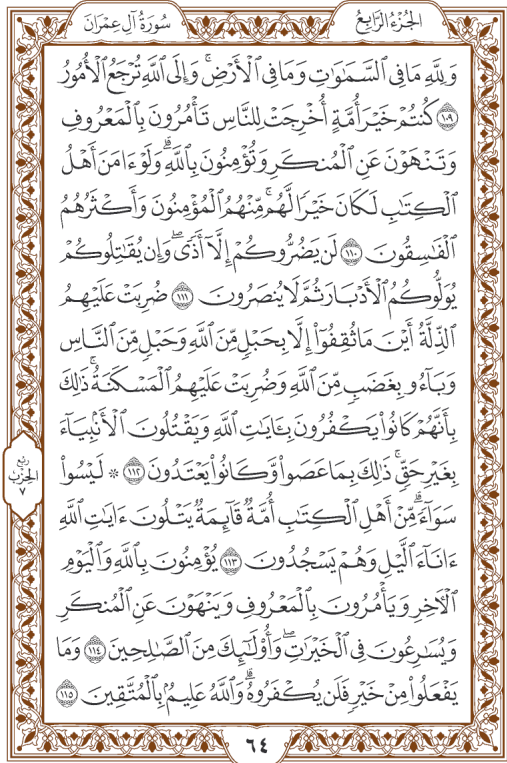 الجُزْءُ الرَّابِعُ
سُورَةُ آلِ عِمْرَانَ
وَلِلَّهِ مَا فِي ٱلسَّمَٰوَٰتِ وَمَا فِي ٱلْأَرْضِۚ وَإِلَى ٱللَّهِ تُرْجَعُ ٱلْأُمُورُ
١٠٩ كُنتُمْ خَيْرَ أُمَّةٍ أُخْرِجَتْ لِلنَّاسِ تَأْمُرُونَ بِٱلْمَعْرُوفِ
وَتَنْهَوْنَ عَنِ ٱلْمُنكَرِ وَتُؤْمِنُونَ بِٱللَّهِۗ وَلَوْ ءَامَنَ أَهْلُ
ٱلْكِتَٰبِ لَكَانَ خَيْرًا لَّهُمۚ مِّنْهُمُ ٱلْمُؤْمِنُونَ وَأَكْثَرُهُمُ
ٱلْفَٰسِقُونَ ١١٠ لَن يَضُرُّوكُمْ إِلَّآ أَذًىۖ وَإِن يُقَٰتِلُوكُمْ
يُوَلُّوكُمُ ٱلْأَدْبَارَ ثُمَّ لَا يُنصَرُونَ ١١١ ضُرِبَتْ عَلَيْهِمُ
ٱلذِّلَّةُ أَيْنَ مَا ثُقِفُوٓا۟ إِلَّا بِحَبْلٍ مِّنَ ٱللَّهِ وَحَبْلٍ مِّنَ ٱلنَّاسِ
وَبَآءُو بِغَضَبٍ مِّنَ ٱللَّهِ وَضُرِبَتْ عَلَيْهِمُ ٱلْمَسْكَنَةُۚ ذَٰلِكَ
بِأَنَّهُمْ كَانُوا۟ يَكْفُرُونَ بِـَٔايَٰتِ ٱللَّهِ وَيَقْتُلُونَ ٱلْأَنۢبِيَآءَ
بِغَيْرِ حَقٍّۚ ذَٰلِكَ بِمَا عَصَوا۟ وَّكَانُوا۟ يَعْتَدُونَ ١١٢ ۞ لَيْسُوا۟
سَوَآءًۗ مِّنْ أَهْلِ ٱلْكِتَٰبِ أُمَّةٌ قَآئِمَةٌ يَتْلُونَ ءَايَٰتِ ٱللَّهِ
ءَانَآءَ ٱلَّيْلِ وَهُمْ يَسْجُدُونَ ١١٣ يُؤْمِنُونَ بِٱللَّهِ وَٱلْيَوْمِ
ٱلْءَاخِرِ وَيَأْمُرُونَ بِٱلْمَعْرُوفِ وَيَنْهَوْنَ عَنِ ٱلْمُنكَرِ
وَيُسَٰرِعُونَ فِي ٱلْخَيْرَٰتِۖ وَأُو۟لَٰٓئِكَ مِنَ ٱلصَّٰلِحِينَ ١١٤ وَمَا
يَفْعَلُوا۟ مِنْ خَيْرٍ فَلَن يُكْفَرُوهُۗ وَٱللَّهُ عَلِيمٌۢ بِٱلْمُتَّقِينَ ١١٥
رُبع
الحِزْب
٧
٦٤